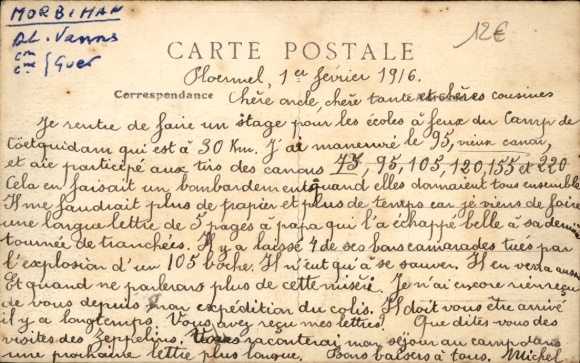 MORBIHAN
At. Vannes
Guer
12€
CARTE POSTALE
Ploermel, 1er février 1916.
Correspondance
Chère oncle, chère tante et chères cousines
Je rentre de faire un stage pour les écoles à feux du Camp de
Cöetquidam qui est à 30 Km. J'ai maneuvré le 95, vieux canon,
et aie participé aux tirs des canons 75, 95, 105, 120, 155 et 220
Cela en faisait un bombardement quand elles donnaient tous ensemble
Il me faudrait plus de papier et plus de temps car je viens de faire
une longue lettre de 5 pages à papa qui l'a échappé belle à sa dernière
tournée de tranchées. Il y a laissé 4 de ses bons camarades tués par
l'explosion d'un 105 boche. Il n'eut qu'à se sauver. Il en verra aussi
Et quand ne parlerons plus de cette misère. Je n'ai encore rien reçu
de vous depuis mon expédition du colis. Il doit vous être arrivé
il y a longtemps. Vous avez reçu mes lettres. Que dites vous des
visites des Zeppelins. raconterai mon séjour au camp dans
une prochaine lettre plus longue. Bons baisers à tous Michel